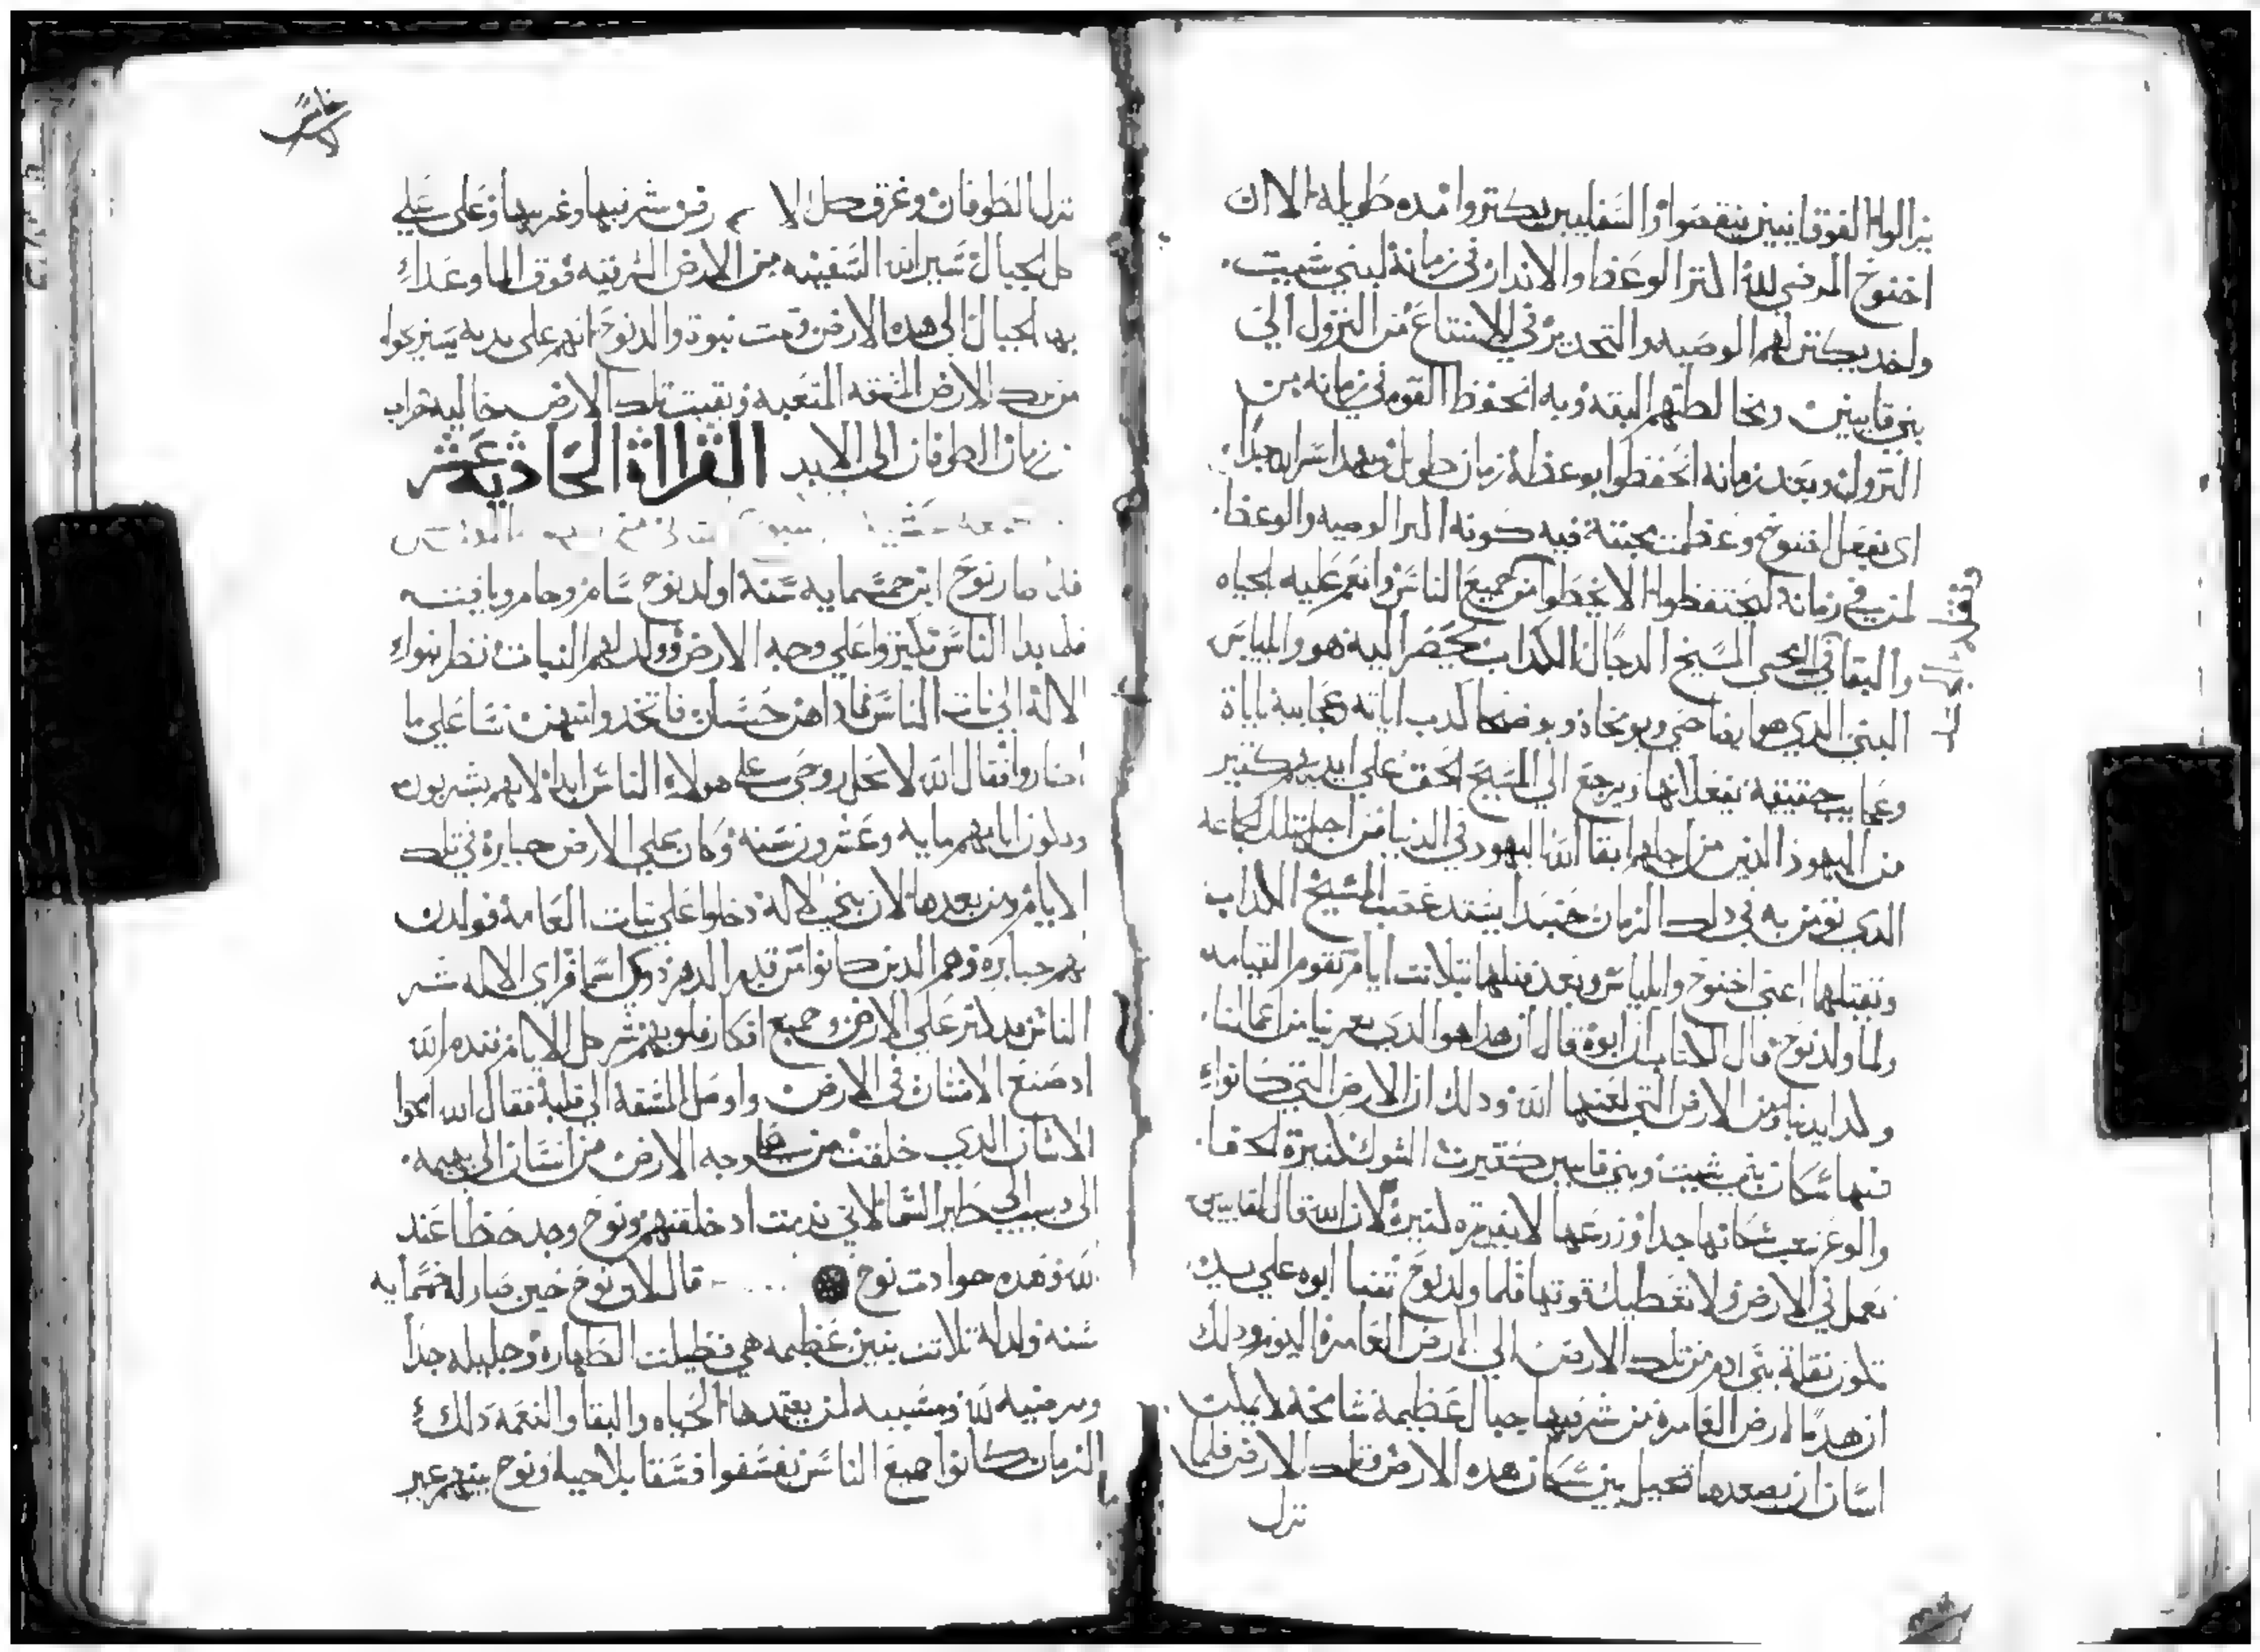 يزالوا الفوقانيين ينقصوا والسفليين يكتروا مده طويله الا ان
اخنوخ المرضي لله اكتر الوعظ والاندار في زمانه لبني شيت
ولمد يكتر لهم الوصيه والتحدير في الامتناع من النزول الي
بني قايين ومخالطتهم البته وبه انحفظ القوم في زمانه من
النزول وبعد زمانه انحفظوا بوعظه زمان طويل وبهدا سر الله جدا
اي بفعل اخنوخ وعظمت محبته فيه كونه اكتر الوصيه والوعظ
لمن في زمانه ليحتفظوا الا يخطوا من جميع الناس وانعم عليه الحياه
والبقا في المسيح الدجال الكداب يحضر اليه هو وايلياس
النبي الدي هو ايضا حي ويوبخاه ويوضحا كدب اياته وعجايبه باياة
وعجايب حقيقية تفعل لانها ويرجع الي المسيح الحق علي ايديهم كتير
من اليهود الدين من اجلهم ابقا الله اليهود في الدنيا من اجل تلك الجماعه
الدي تومن به في دلك الزمان حينيد يشتد غضب المسيح الكداب
ويقتلهما اعني اخنوخ وايلياس وبعد قتلهما بتلاتت ايام تقوم القيامه
ولما ولد نوح قال الكتاب ان ابوه قال ان هدا هو الدي يعزينا من اعمالنا
وكد ايدينا ومن الارض التي لعنها الله ودلك ان الارض التي كانوا
فيها سكان بني شيت وبني قايين كتيرت الشوك كتيرة الحفا
والوعر تعب سكانها جدا وزرعها لا يفيد تمره كتيرة لان الله قال لقايين
تعمل في الارض ولا تعطيك قوتها فلما ولد نوح تنبا ابوه علي يديه
تكون نقلة بني ادم من تلك الارض الي الارض العامرة اليوم ودلك
ان هده الارض العامرة من شرقيها جبال عظيمة شامخه لا يمكن
انسان ان يصعدها تحيل بين سكان هده الارض وتلك الارض فلما
نزل
نزل الطوفان وغرق كل الارض شرقيها وغربيها وعلي علي
كل الجبال سير الله السفينه من الارض الشرقيه فوق الما وعدا
بها الجبال الي هده الارض وتمت نبوة والد نوح انهم علي يديه يستريحوا
من كد الارض المتعبه وبقيت تلك الارض خاليه خراب
من زمان الطوفان الي الابد القراة الحادية عشر
فلما صار نوح ابن خمسمايه سنة اولد نوح سام وحام ويافت
فلما بدا الناس يكتروا علي وجه الارض وولد لهم البنات نظر بنوا
الاله الي بنات الناس فاداهن حسان فاتخدوا منهن نسا علي ما
اختاروا فقال الله لا تحل روحي علي هولاء الناس ابدا لانهم بشريون
وتكون ايامهم مايه وعشرون سنه وكان علي الارض جبابرة في تلك
الايام ومن بعدها لان بني الاله دخلوا علي بنات العامة فولدن
لهم جبابره وهم الدين كانوا من قديم الدهر دوي اسما فراي الاله شر
الناس قد كتر علي الارض وجميع افكار قلوبهم شر كل الايام فندم الله
اد صنع الانسان في الارض واوصل المشقة الي قلبه فقال الله امحوا
الانسان الدي خلقت من علي وجه الارض من انسان الي بهيمه
الي دبيب الي طير السما لاني ندمت اد خلقتهم ونوح وجد حظا عند
الله وهده حوادت نوح قال لان نوح حين صار له خمسمايه
سنه ولد له تلاتت بنين عظيمه هي فضيلت الطهاره وجليله جدا
ومرضيه لله ومسببه لمن يعتمدها الحياه والبقا والنعمه دلك
الزمان كانوا جميع الناس يفسقوا فسقا بلا حيا ونوح بينهم غير